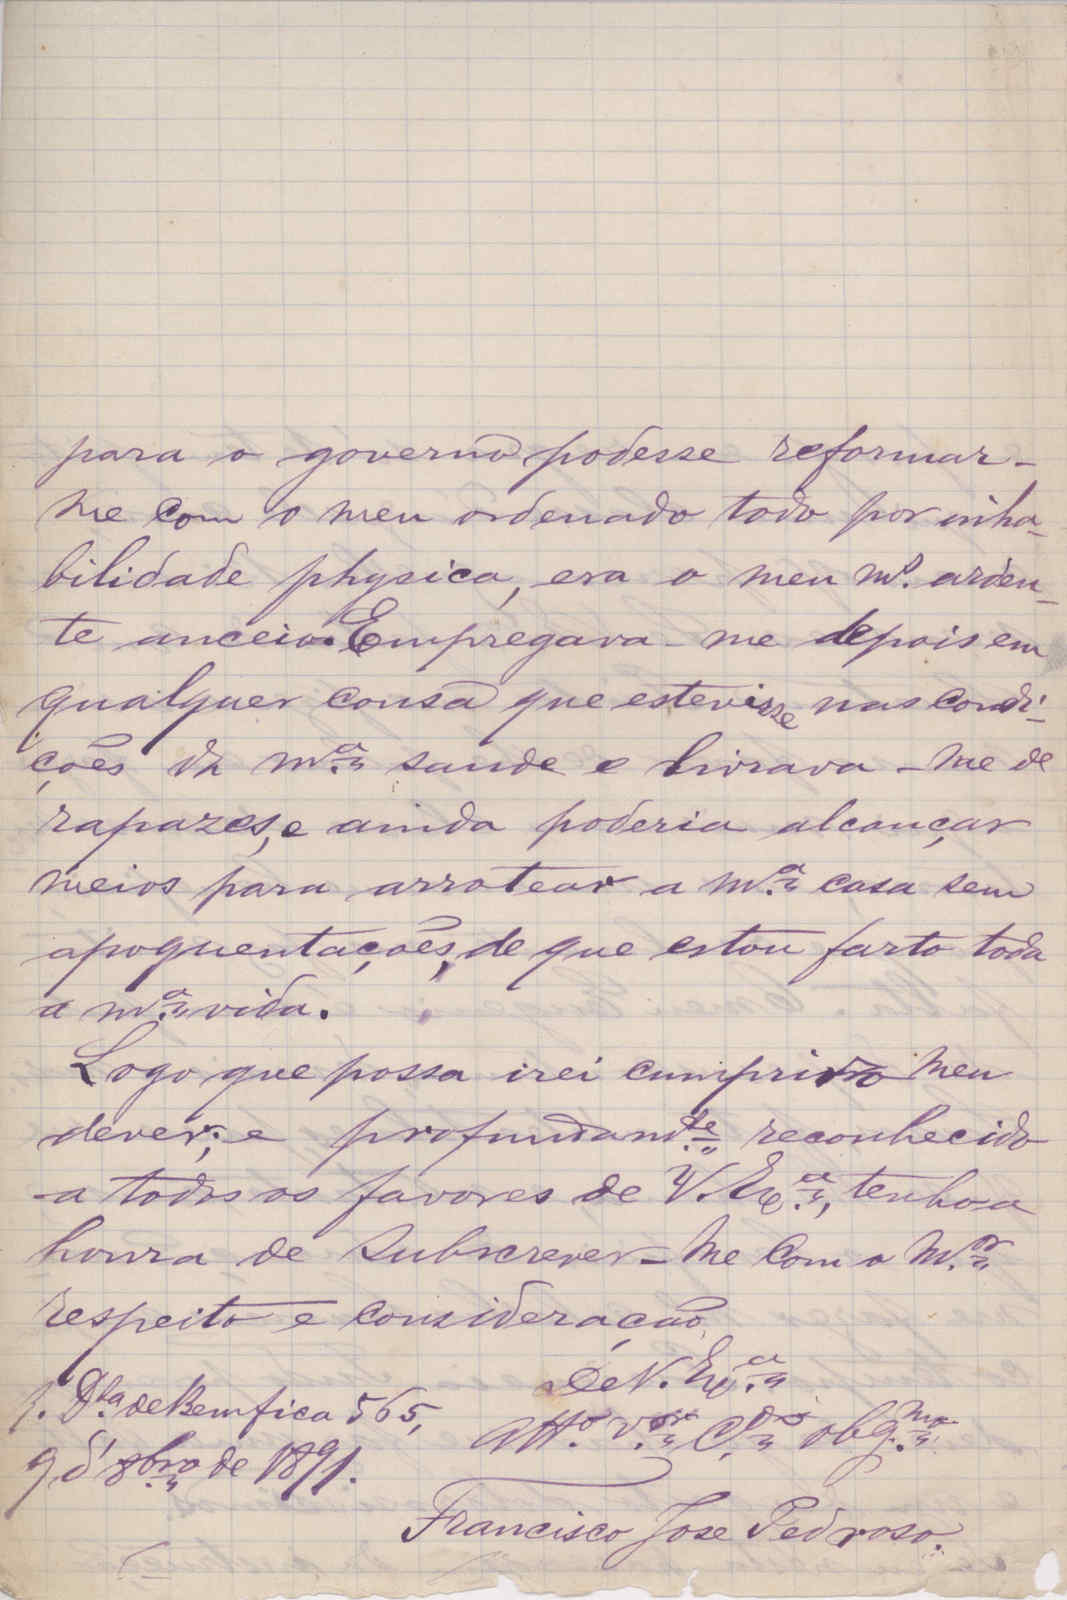 para o governo podesse reformar-
me com o meu ordenado todo por inha-
bilidade physica, era o meu m.º arden-
te anceio. Empregava-me depois em
qualquer cousa que estevesse nas condi-
ções da m.ª saude e livrava-me de
rapazes, e ainda poderia alcançar
meios para arrotear a m.ª casa sem
apoquentações, de que estou farto toda
a m.ª vida.
Logo que possa irei cumprir o meu
dever; e profundam.te reconhecido
a todos os favores de V. Ex.ª, tenho a
honra de subscrever-me com o m.or
respeito e consideração
De V. Ex.ª
att.º v.or C.do obg.mo
de Bemfica 565,
9 d' 8bro de 1891.
Francisco Jose Pedroso.